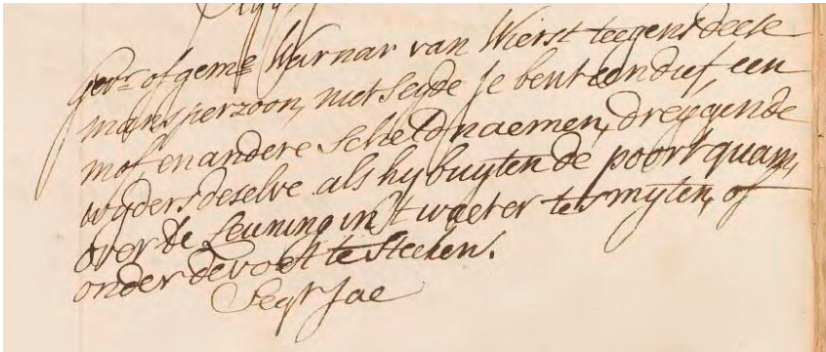 gevr. of geme. Warnar van Wierst teegens deese
manspersoon, niet seyde je bent een dief, een
mof, en andere scheldnaemen, dreygende
wyders deselve als hy buyten de poort quam,
over de Leuning in 't waeter te smyten, of
onder de voet te steeken.
Segt Jae